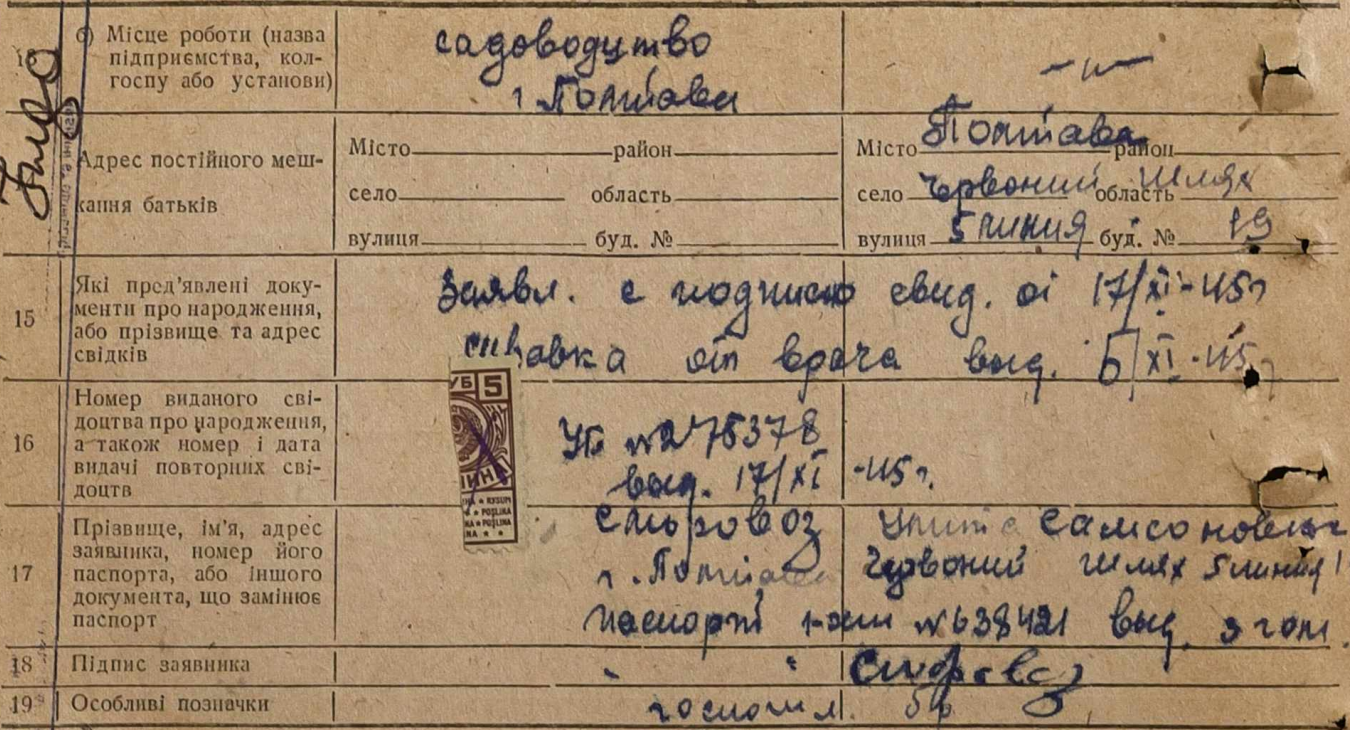 б) Місце роботи (назва підприємства, колгоспу або установи)
садоводство
г. Полтава
— " —
Адрес постійного меш-
кання батьків
Місто район
село область
вулиця буд. №
Місто Полтава район
село Червоний Шлях область
вулиця 5 линия буд. № 19
15
Які пред'явлені доку-
менти про народження,
або прізвище та адрес
свідків
Заявл. с подписью свид. от 17/XI-45 г
справка от врача выд. 5/XI-45 г
16
Номер виданого сві-
доцтва про народження,
а також номер і дата
видачі повторних сві-
доцтв
УБ № 275378
выд. 17/XI-45 г.
УБ 5
17
Прізвище, ім'я, адрес
заявника, номер його
паспорта, або іншого
документа, що замінює
паспорт
Самсоновна
г. Полтава Червоний Шлях 5 линия
Паспорт № 638421 выд. 3 гом.
18
Підпис заявника
19
Особливі позначки
госпошл. 5р